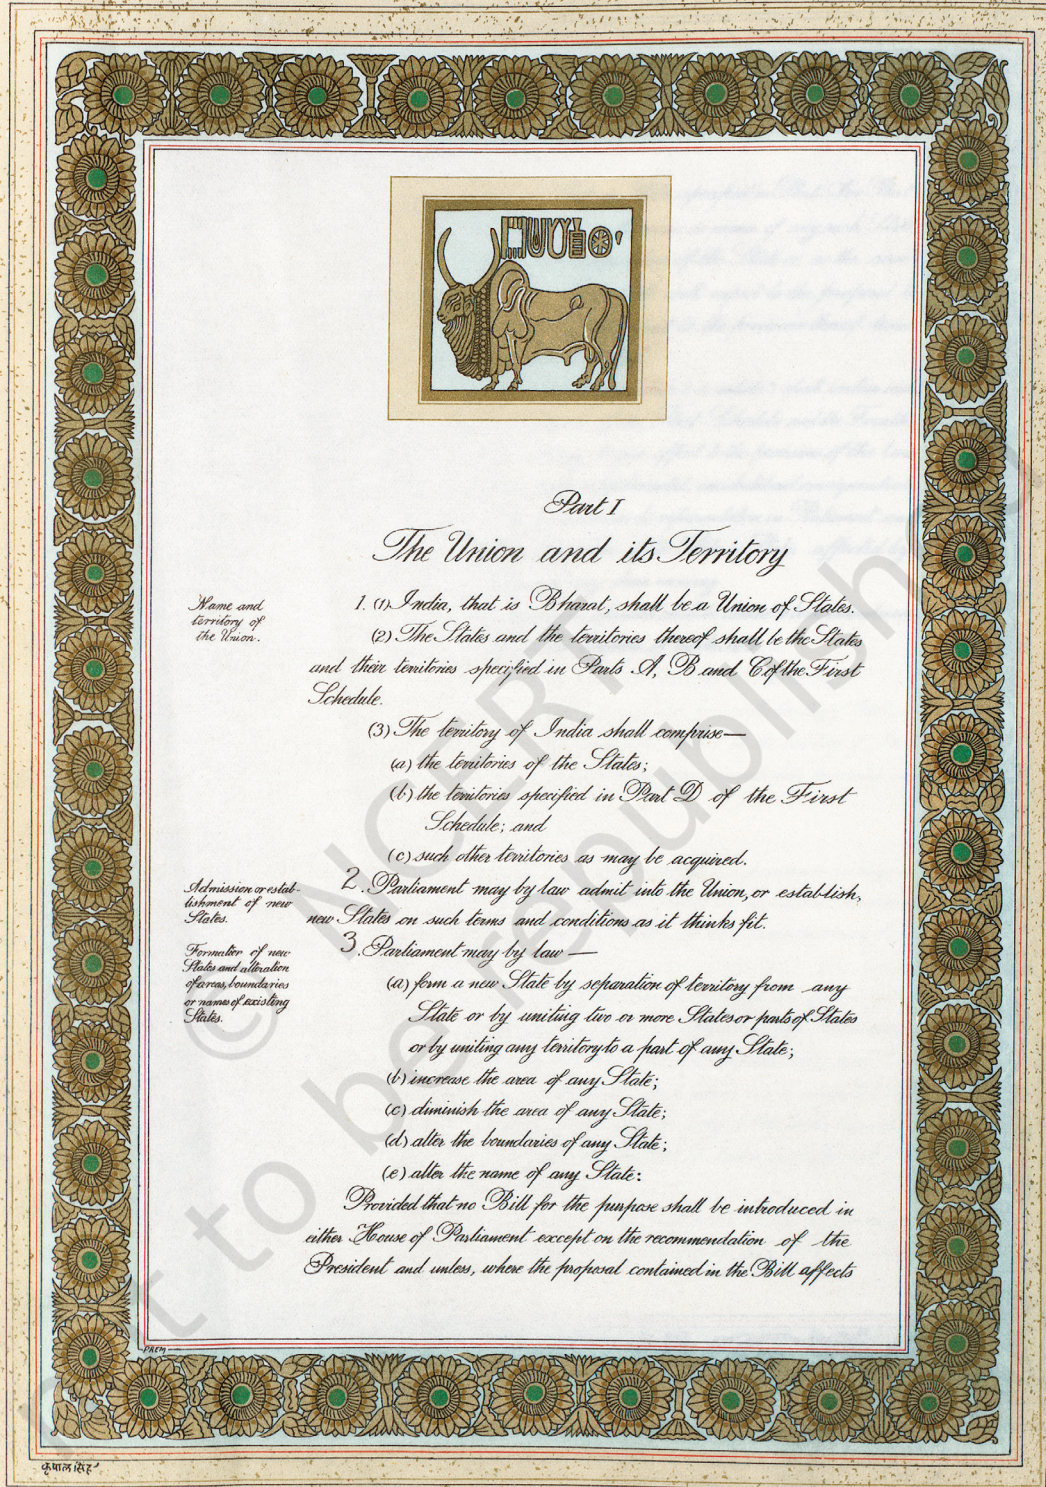 Part I
The Union and its Territory
Name and
territory of
the Union.
1. (1) India, that is Bharat, shall be a Union of States.
(2) The States and the territories thereof shall be the States
and their territories specified in Parts A, B and C of the First
Schedule.
(3) The territory of India shall comprise—
(a) the territories of the States;
(b) the territories specified in Part D of the First
Schedule; and
(c) such other territories as may be acquired.
Admission or estab-
lishment of new
States.
2. Parliament may by law admit into the Union, or estab-lish,
new States on such terms and conditions as it thinks fit.
Formation of new
States and alteration
of areas, boundaries
or names of existing
States.
3. Parliament may by law —
(a) form a new State by separation of territory from any
State or by uniting two or more States or parts of States
or by uniting any territory to a part of any State;
(b) increase the area of any State;
(c) diminish the area of any State;
(d) alter the boundaries of any State;
(e) alter the name of any State:
Provided that no Bill for the purpose shall be introduced in
either House of Parliament except on the recommendation of the
President and unless, where the proposal contained in the Bill affects
PREM
कृपाल सिंह
© NCERT
not to be republished